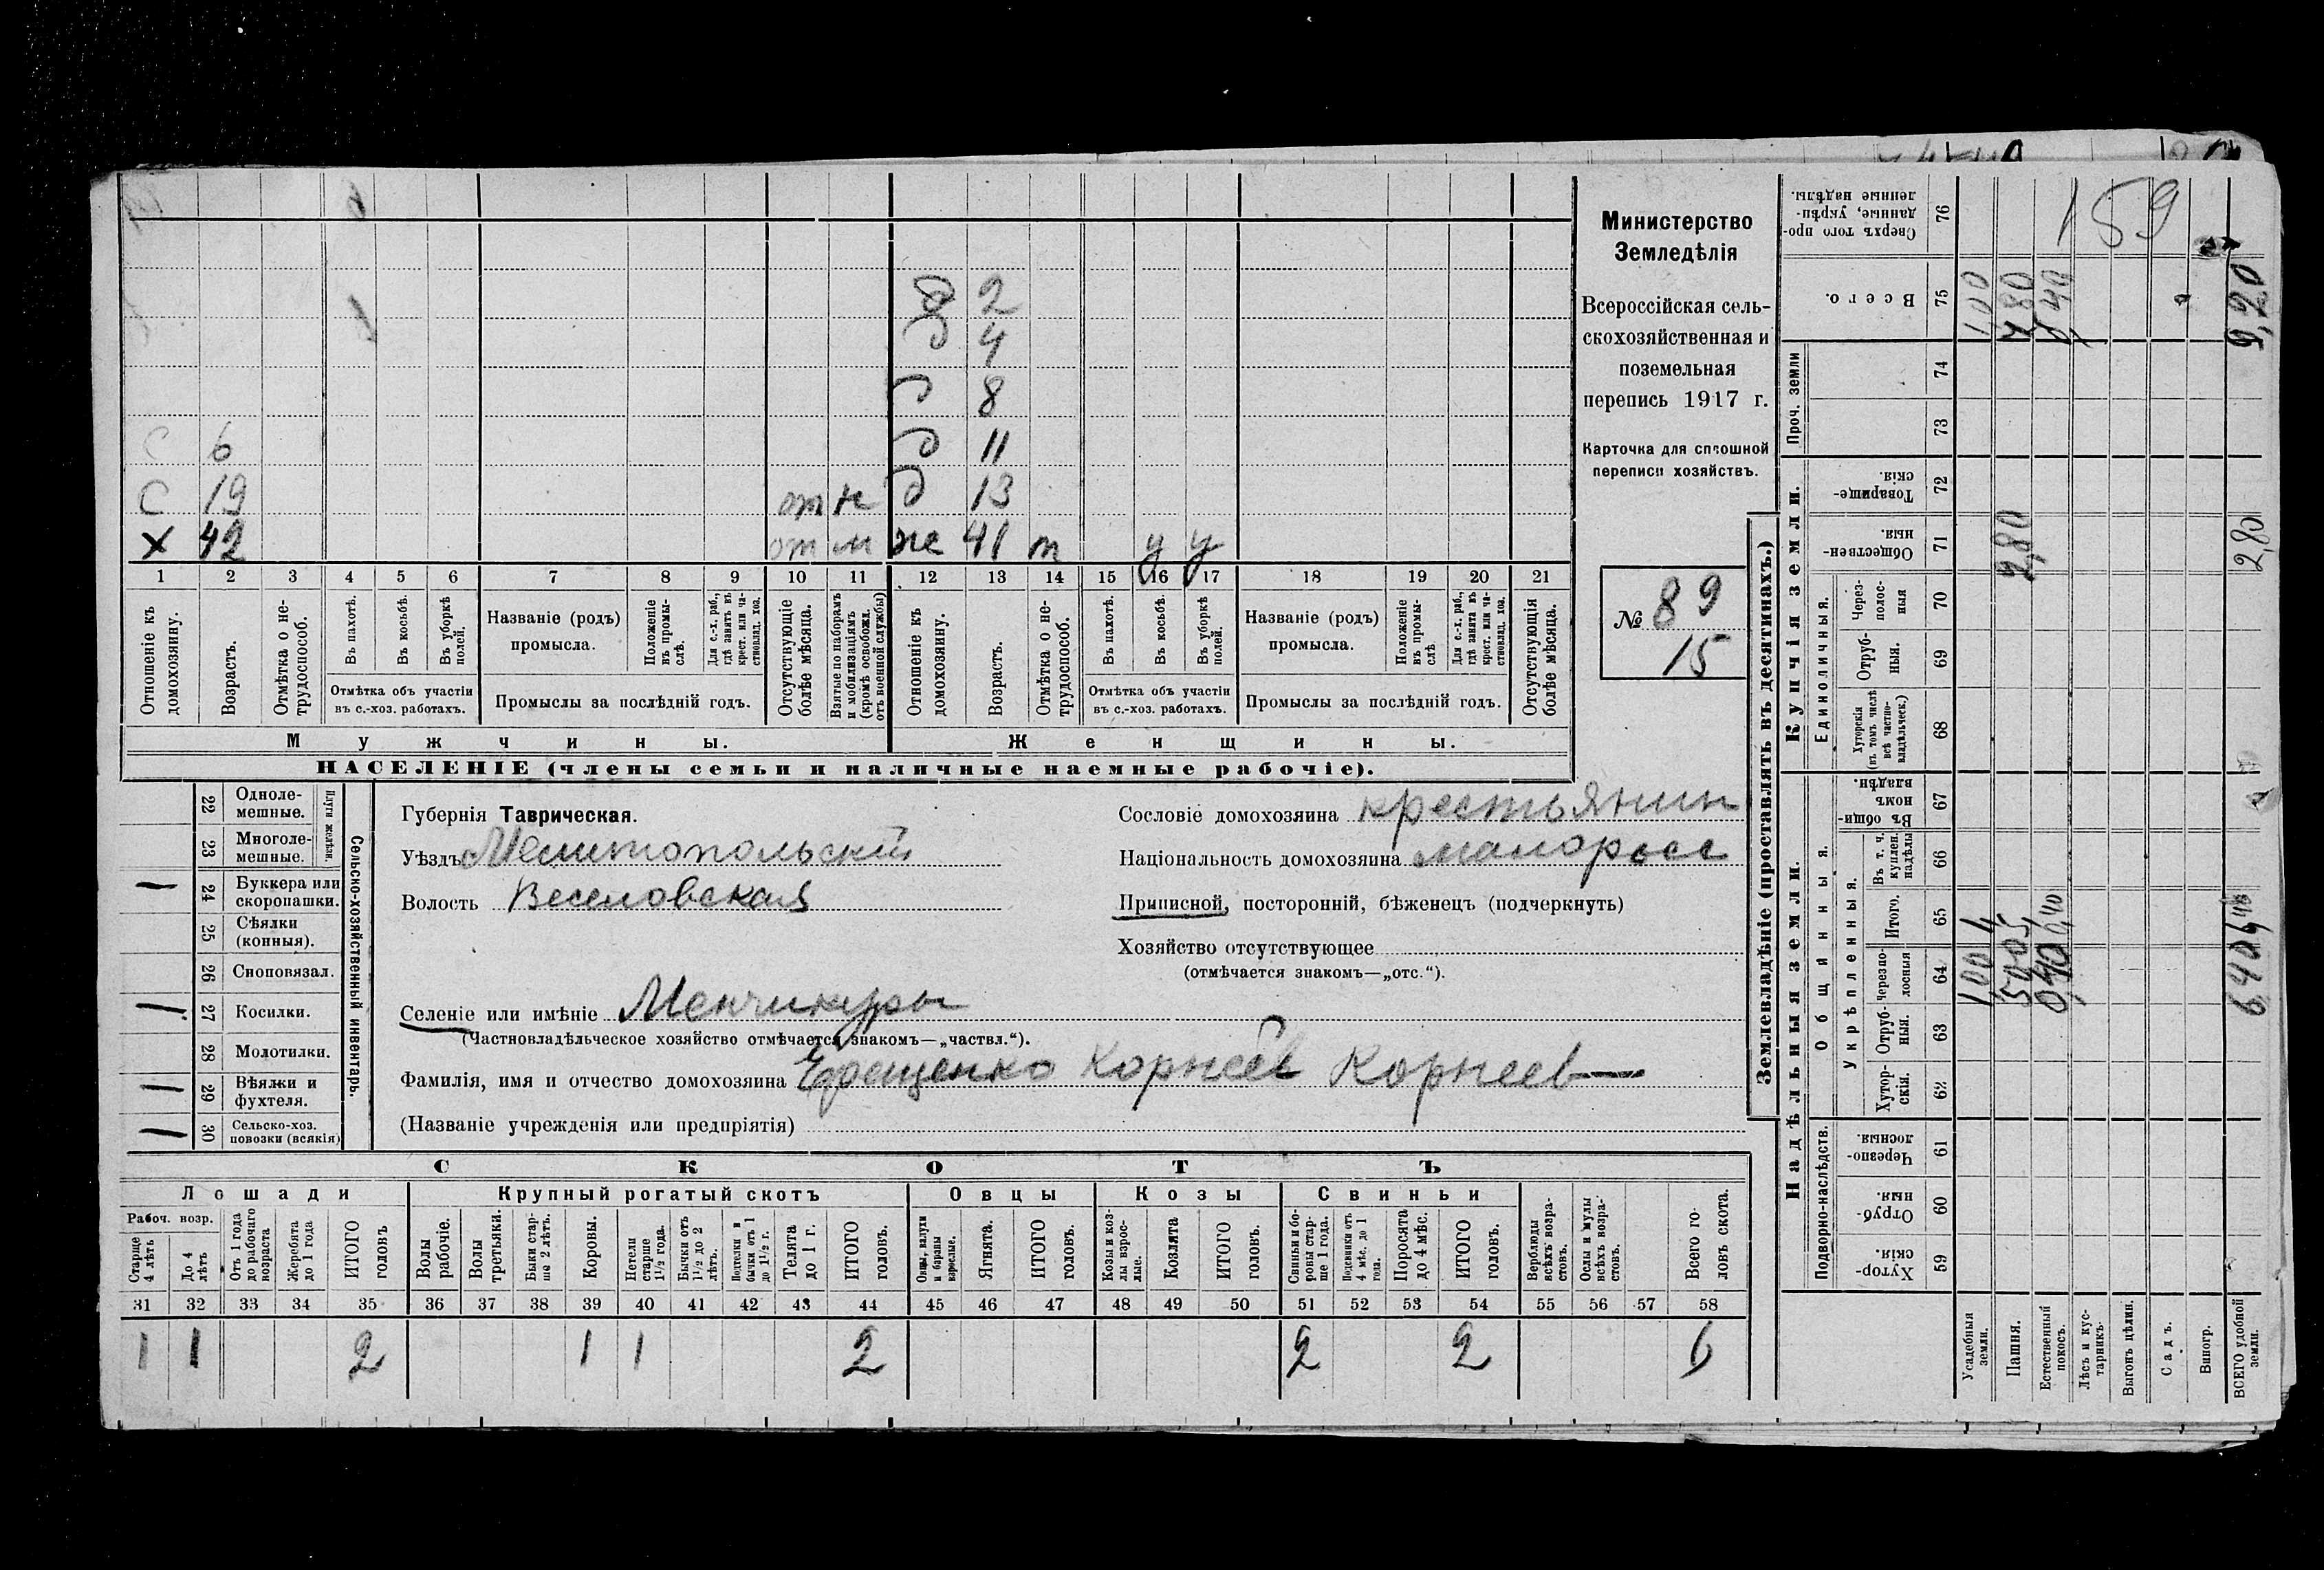 д 2
д 4
д 8
С 6 д 11
С 19 от н д 13
Х 42 от м ж 41 т у у
1 2 3 4 5 6 7 8 9 10 11 12 13 14 15 16 17 18 19 20 21
Отношеніе къ домохозяину.
Возрастъ.
Отмѣтка о не-трудоспособ.
Въ пахотѣ.
Въ косьбѣ.
Въ уборкѣ полей.
Отмѣтка объ участіи въ с.-хоз. работахъ.
Названіе (родъ) промысла.
Положеніе въ промы-слѣ.
Для с.-х. раб., гдѣ занятъ въ крест. или ча-стновлад. хоз.
Промыслы за послѣдній годъ.
Отсутствующіе болѣе мѣсяца.
Взятые по наборамъ и мобилизаціямъ (кромѣ освобожд. отъ военной службы)
Отношеніе къ домохозяину.
Возрастъ.
Отмѣтка о не-трудоспособ.
Въ пахотѣ.
Въ косьбѣ.
Въ уборкѣ полей.
Отмѣтка объ участіи въ с.-хоз. работахъ.
Названіе (родъ) промысла.
Положеніе въ промы-слѣ
Для с.-х. раб., гдѣ занята въ крест. или ча-стновлад. хоз.
Промыслы за послѣдній годъ.
Отсутствующія болѣе мѣсяца.
Мужчины. Женщины.
НАСЕЛЕНІЕ (члены семьи и наличные наемные рабочіе).
Министерство
Земледѣлія
Всероссійская сель-
скохозяйственная и
поземельная
перепись 1917 г.
Карточка для сплошной
переписи хозяйствъ.
№ 89
15
22 Одноле-мешные.
23 Многоле-мешные.
Плуги желѣзн.
24 Буккера или скоропашки. 1
25 Сѣялки (конныя).
26 Сноповязал.
27 Косилки. 1
28 Молотилки.
29 Вѣялки и фухтеля. 1
30 Сельско-хоз. повозки (всякія) 1
Сельско-хозяйственный инвентарь.
Губернія Таврическая.
Уѣздъ Мелитопольский
Волость Веселовская
Селеніе или имѣніе Менчикуры
(Частновладѣльческое хозяйство отмѣчается знакомъ—„частвл.“).
Фамилія, имя и отчество домохозяина Ерещенко Корней Корнеев
(Названіе учрежденія или предпріятія)
Сословіе домохозяина крестьянин
Національность домохозяина малоросс
Приписной, посторонній, бѣженецъ (подчеркнуть)
Хозяйство отсутствующее
(отмѣчается знакомъ—„отс.“).
СКОТЪ
Лошади Крупный рогатый скотъ Овцы Козы Свиньи
Рабоч. возр.
Старше 4 лѣтъ
До 4 лѣтъ
Отъ 1 года до рабочаго возраста
Жеребята до 1 года
ИТОГО головъ
Волы рабочіе.
Волы третьяки.
Быки стар-ше 2 лѣтъ.
Коровы.
Нетели старше 1 1/2 года.
Бычки отъ 1 1/2 до 2 лѣтъ.
Подтелки и бычки отъ 1 до 1 1/2 г.
Телята до 1 г.
ИТОГО головъ.
Овцы, валухи и бараны взрослые.
Ягнята.
ИТОГО головъ.
Козы и коз-лы взрос-лые.
Козлята
ИТОГО головъ.
Свиньи и бо-ровы стар-ше 1 года.
Подсвинки отъ 4 мѣс. до 1 года.
Поросята до 4 мѣс.
ИТОГО головъ.
Верблюды всѣхъ возра-стовъ.
Ослы и мулы всѣхъ возра-стовъ.
Всего го-ловъ скота.
31 32 33 34 35 36 37 38 39 40 41 42 43 44 45 46 47 48 49 50 51 52 53 54 55 56 57 58
1 1 2 1 1 2 2 2 6
Землевладѣніе (проставлять въ десятинахъ.)
Надѣльныя земли. Купчія земли. Проч. земли
Подворно-наслѣдств. Общинныя. Укрѣпленныя. Единоличныя.
59 Хутор-скія.
60 Отруб-ныя.
61 Черезпо-лосныя.
62 Хутор-скія.
63 Отруб-ныя.
64 Черезпо-лосныя
65 Итого.
66 Въ т. ч. куплен. надѣлы
67 Въ общин-номъ владѣн.
68 Хуторскія (въ томъ числѣ всѣ частно-владѣльческ.)
69 Отруб-ныя.
70 Через-полос-ныя
71 Обществен-ныя.
72 Товарище-скія
73
74
75 Всего.
76 Сверхъ того про-данные, укрѣп-ленные надѣлы.
159
Усадебныя земли. 1,00 100
Пашня. 2,80 7 80
Естественный покосъ. 0,40 0 40
Лѣсъ и кус-тарникъ.
Выгонъ цѣлин.
Садъ.
Виногр.
ВСЕГО удобной земли. 6,40 2,80 9,20